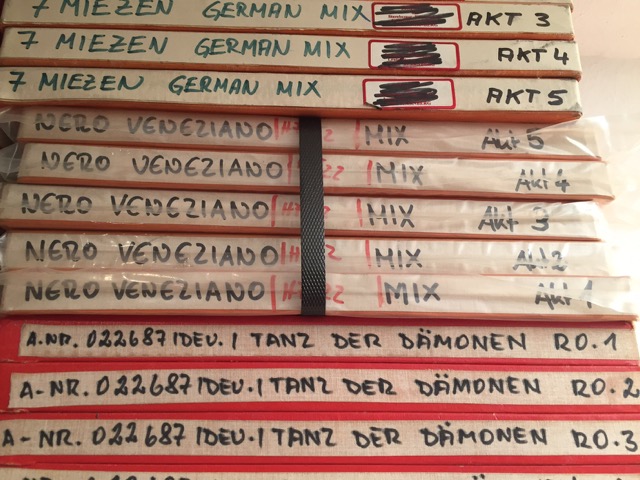 7 MIEZEN GERMAN MIX AKT 3
7 MIEZEN GERMAN MIX AKT 4
7 MIEZEN GERMAN MIX AKT 5
NERO VENEZIANO MIX Akt 5
NERO VENEZIANO MIX Akt 4
NERO VENEZIANO MIX Akt 3
NERO VENEZIANO MIX Akt 2
NERO VENEZIANO MIX Akt 1
A-NR. 022687 / DEU. / TANZ DER DÄMONEN RO. 1
A-NR. 022687 / DEU. / TANZ DER DÄMONEN RO. 2
A-NR. 022687 / DEU. / TANZ DER DÄMONEN RO. 3